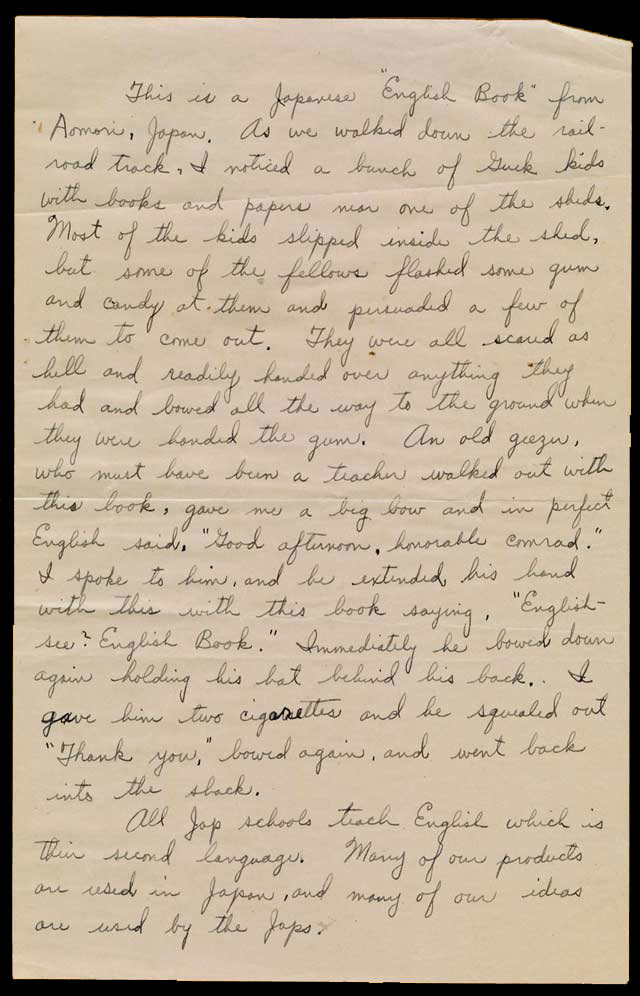 This is a Japanese "English Book" from
Aomori, Japan. As we walked down the rail-
road track, I noticed a bunch of Guck kids
with books and papers near one of the sheds.
Most of the kids slipped inside the shed,
but some of the fellows flashed some gum
and candy at them and persuaded a few of
them to come out. They were all scared as
hell and readily handed over anything they
had and bowed all the way to the ground when
they were handed the gum. An old geezer,
who must have been a teacher walked out with
this book, gave me a big bow and in perfect
English said, "Good afternoon, honorable comrad."
I spoke to him, and he extended his hand
with this with this book saying, "English-
see? English Book." Immediately he bowed down
again holding his hat behind his back.. I
gave him two cigarettes and he squealed out
"Thank you," bowed again, and went back
into the shack.
All Jap schools teach English which is
their second language. Many of our products
are used in Japan, and many of our ideas
are used by the Japs.